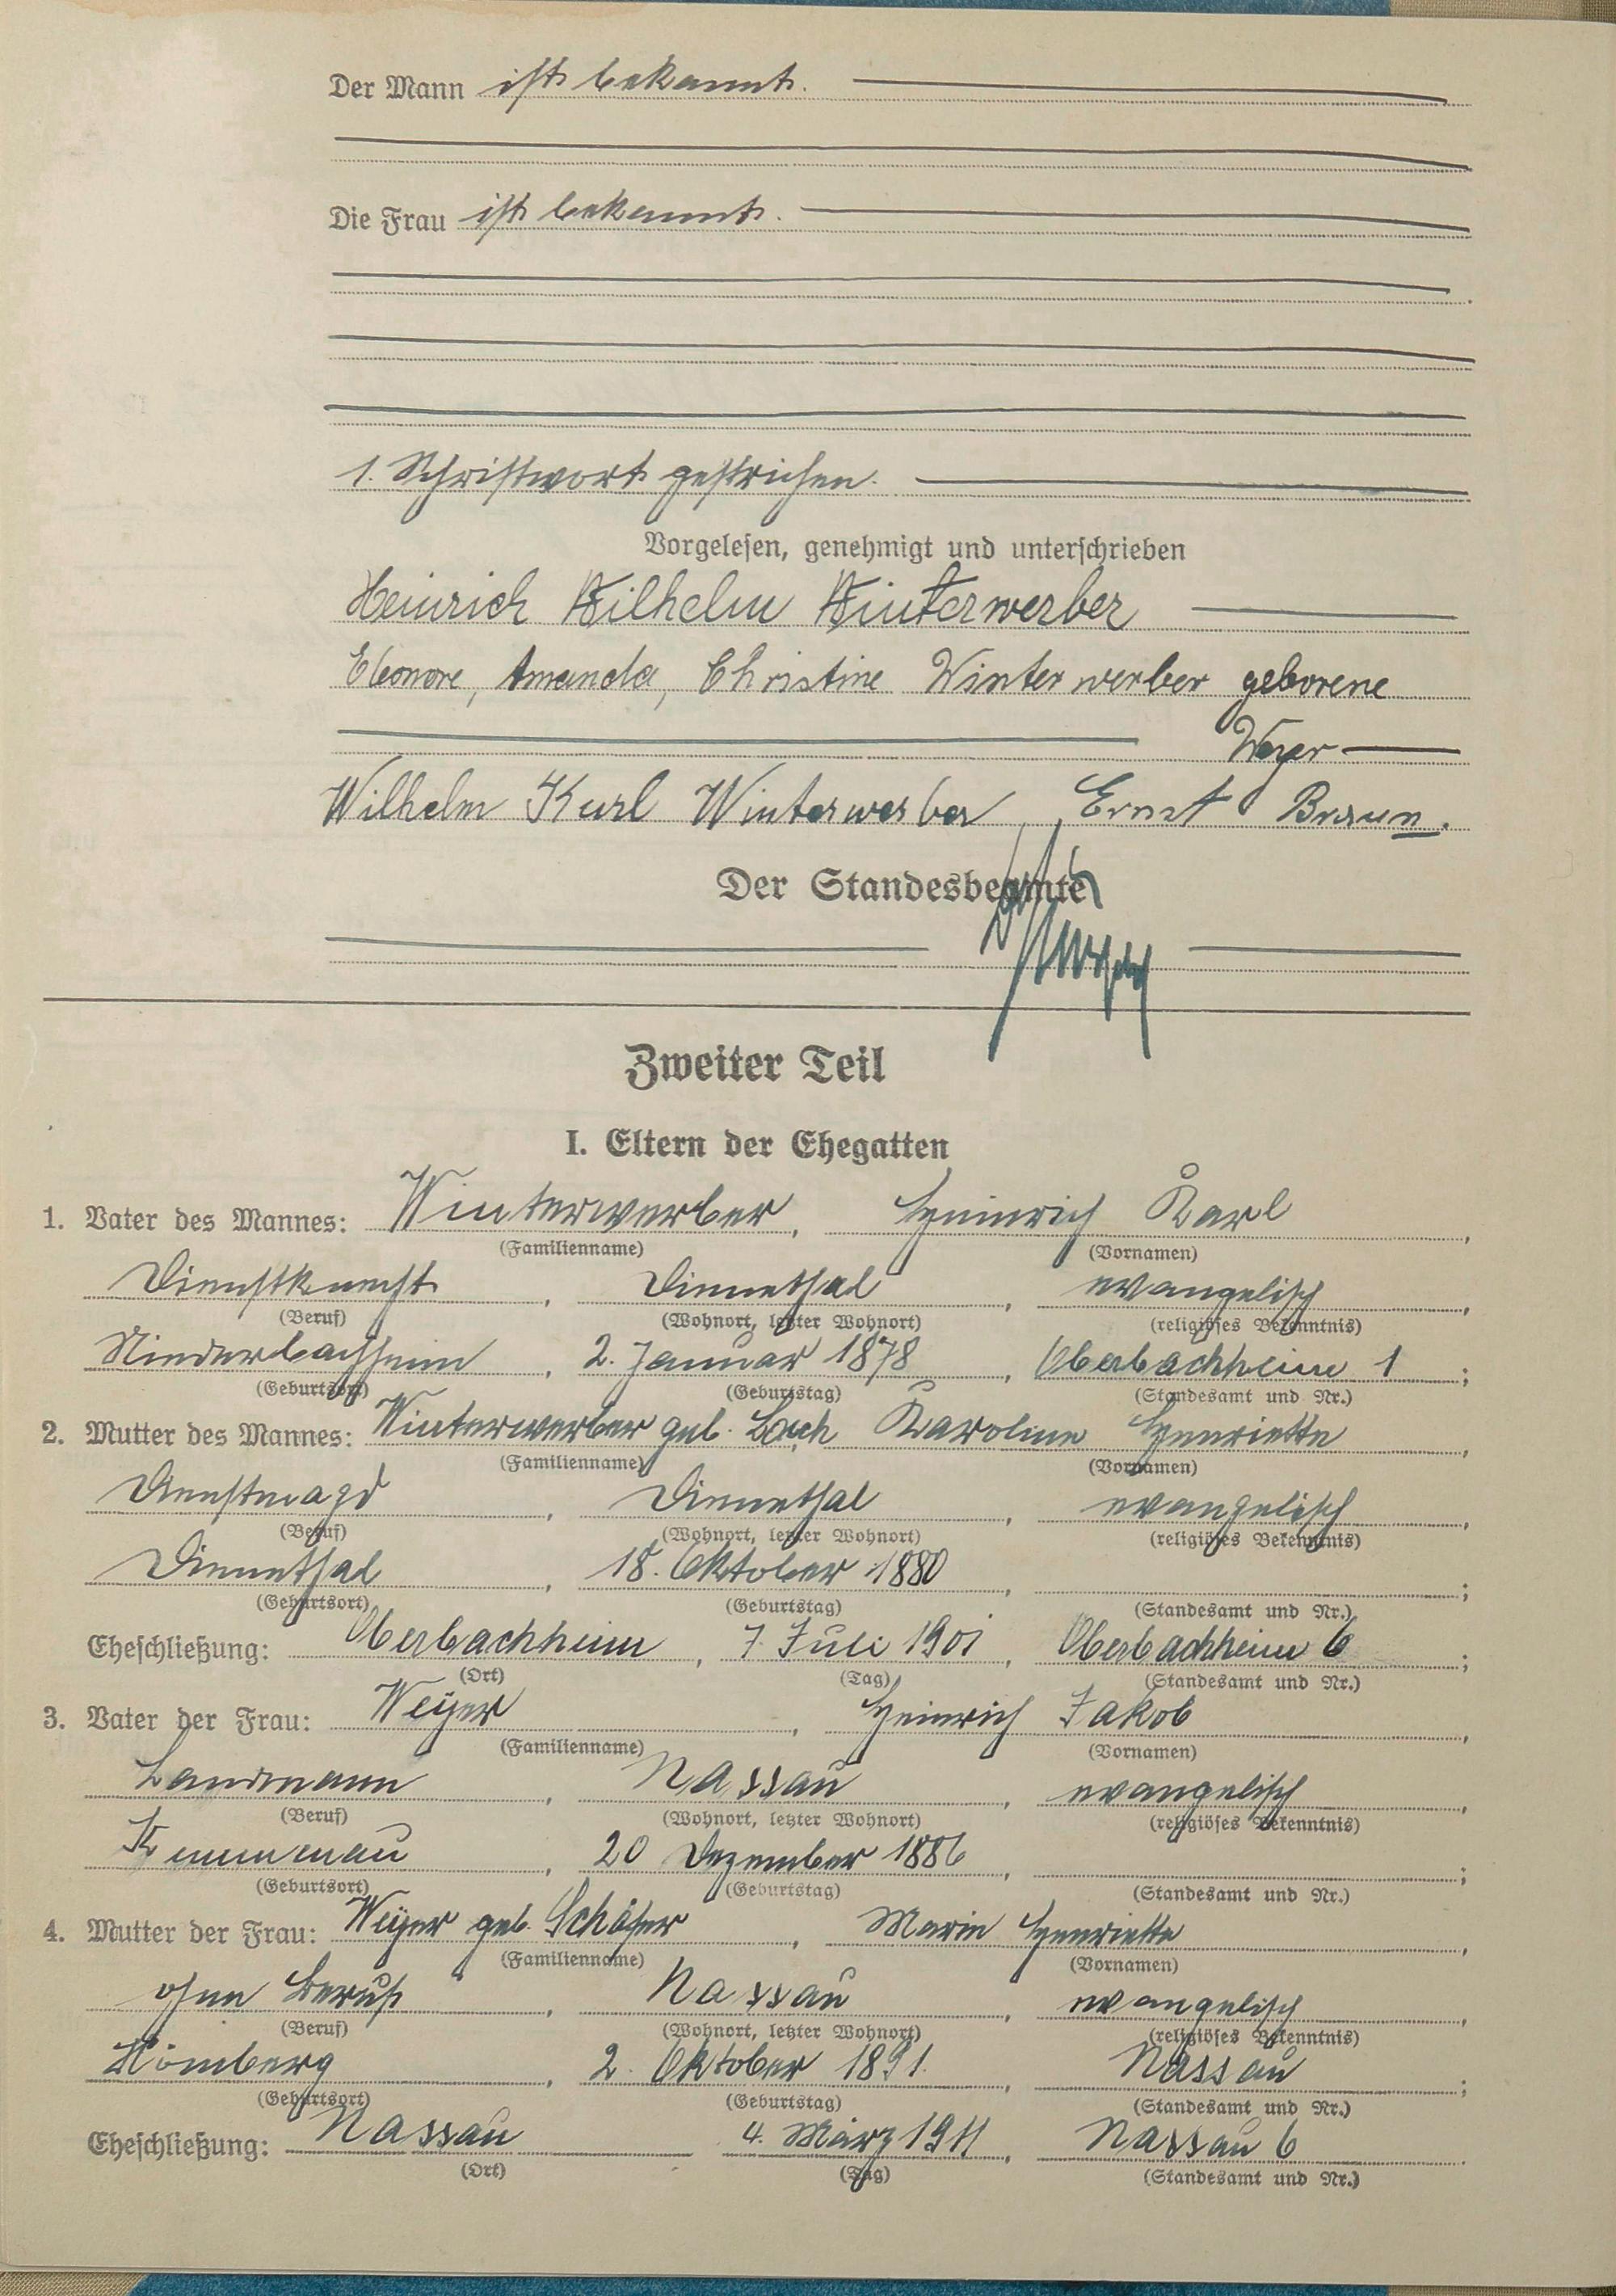 Der Mann ist bekannt.
Die Frau ist bekannt.
1. Schriftwort gestrichen.
Vorgelesen, genehmigt und unterschrieben
Heinrich Wilhelm Winterwerber
Eleonore, Amanda, Christine Winterwerber geborene
Weyer
Wilhelm Karl Winterwerber, Ernst Braun.
Der Standesbeamte
Zweiter Teil
I. Eltern der Ehegatten
1. Vater des Mannes: Winterwerber, Heinrich Karl,
(Familienname) (Vornamen)
Dienstknecht, Dienethal, evangelisch,
(Beruf) (Wohnort, letzter Wohnort) (religiöses Bekenntnis)
Niederbachheim, 2. Januar 1878, Oberbachheim 1;
(Geburtsort) (Geburtstag) (Standesamt und Nr.)
2. Mutter des Mannes: Winterwerber geb. Bach Karoline Henriette,
(Familienname) (Vornamen)
Dienstmagd, Dienethal, evangelisch,
(Beruf) (Wohnort, letzter Wohnort) (religiöses Bekenntnis)
Dienethal, 18. Oktober 1880, ;
(Geburtsort) (Geburtstag) (Standesamt und Nr.)
Eheschließung: Oberbachheim, 7. Juli 1901, Oberbachheim 6;
(Ort) (Tag) (Standesamt und Nr.)
3. Vater der Frau: Weyer, Heinrich Jakob,
(Familienname) (Vornamen)
Landmann, Nassau, evangelisch,
(Beruf) (Wohnort, letzter Wohnort) (religiöses Bekenntnis)
Kemmenau, 20 Dezember 1886, ;
(Geburtsort) (Geburtstag) (Standesamt und Nr.)
4. Mutter der Frau: Weyer geb. Schäfer, Marie Henriette,
(Familienname) (Vornamen)
ohne Beruf, Nassau, evangelisch,
(Beruf) (Wohnort, letzter Wohnort) (religiöses Bekenntnis)
Hömberg, 2. Oktober 1891. Nassau;
(Geburtsort) (Geburtstag) (Standesamt und Nr.)
Eheschließung: Nassau 4. März 1911, Nassau 6.
(Ort) (Tag) (Standesamt und Nr.)